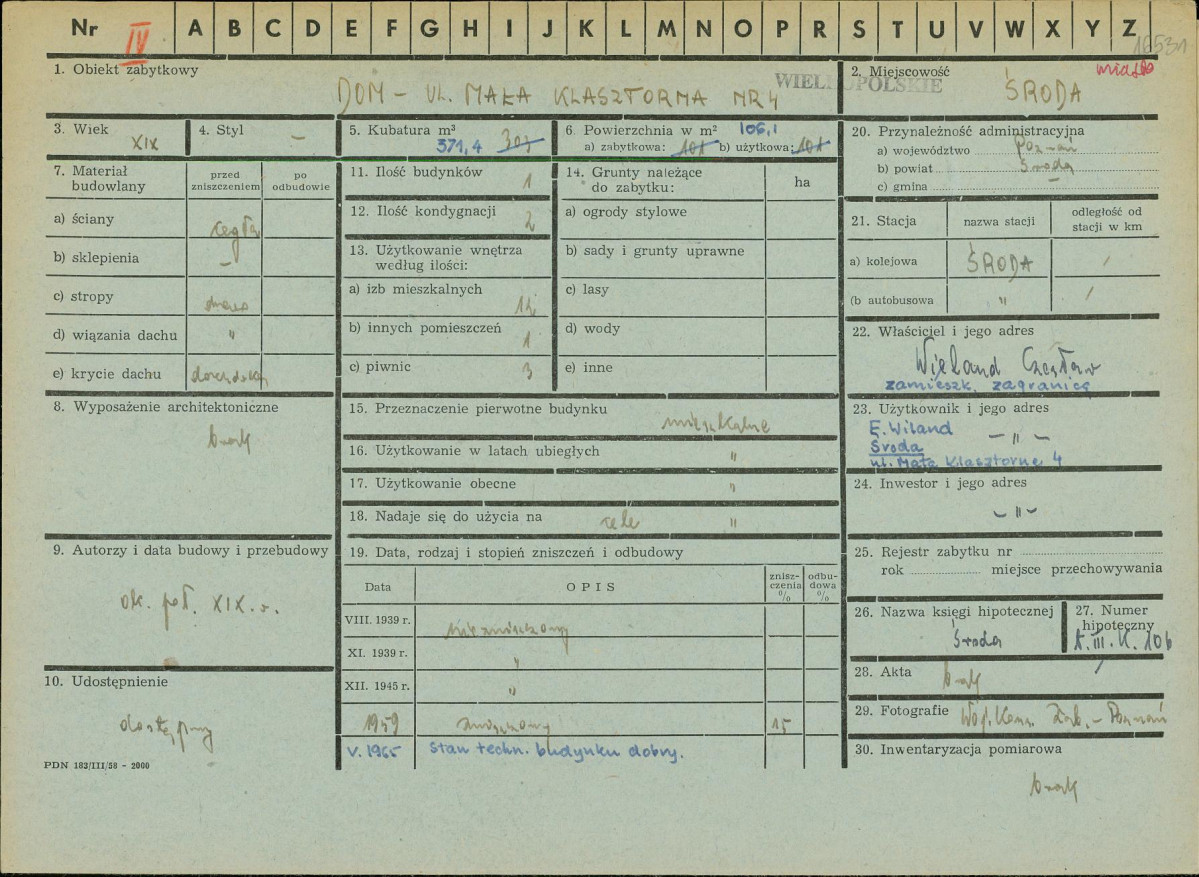 Nr IV A B C D E F G H I J K L M N O P R S T U V W X Y Z
16531
1. Obiekt zabytkowy
DOM – UL. MAŁA KLASZTORNA NR 4
WIELKOPOLSKIE
2. Miejscowość
miasto
ŚRODA
3. Wiek
XIX
4. Styl
–
5. Kubatura m³
371,4 307
6. Powierzchnia w m² 106,1
a) zabytkowa: 107 b) użytkowa: 107
20. Przynależność administracyjna
a) województwo Poznań
b) powiat Środa
c) gmina –
7. Materiał budowlany
przed zniszczeniem
po odbudowie
a) ściany cegła
b) sklepienia –
c) stropy drewno
d) wiązania dachu "
e) krycie dachu dachówka
11. Ilość budynków 1
12. Ilość kondygnacji 2
13. Użytkowanie wnętrza
według ilości:
a) izb mieszkalnych 12
b) innych pomieszczeń 1
c) piwnic 3
14. Grunty należące
do zabytku:
ha
a) ogrody stylowe
b) sady i grunty uprawne
c) lasy
d) wody
e) inne
21. Stacja
nazwa stacji
odległość od
stacji w km
a) kolejowa ŚRODA /
(b autobusowa " /
22. Właściciel i jego adres
Wieland Czesław
zamieszk. zagranicą
8. Wyposażenie architektoniczne
brak
15. Przeznaczenie pierwotne budynku
mieszkalne
16. Użytkowanie w latach ubiegłych "
17. Użytkowanie obecne "
18. Nadaje się do użycia na cele "
23. Użytkownik i jego adres
E. Wiland – " –
Środa
ul. Mała Klasztorne 4
24. Inwestor i jego adres
– " –
9. Autorzy i data budowy i przebudowy
ok. poł. XIX w.
19. Data, rodzaj i stopień zniszczeń i odbudowy
Data
OPIS
znisz-
czenia
%
odbu-
dowa
%
VIII. 1939 r. niezniszczony
XI. 1939 r. "
XII. 1945 r. "
1959 zniszczony 15
V. 1965 Stan techn. budynku dobry.
25. Rejestr zabytku nr
rok miejsce przechowywania
26. Nazwa księgi hipotecznej
Środa
27. Numer
hipoteczny
t. III. K. 106
10. Udostępnienie
dostępny
28. Akta brak
29. Fotografie Woj. Kons. Zab. – Poznań
30. Inwentaryzacja pomiarowa
brak
PDN 183/III/58 - 2000